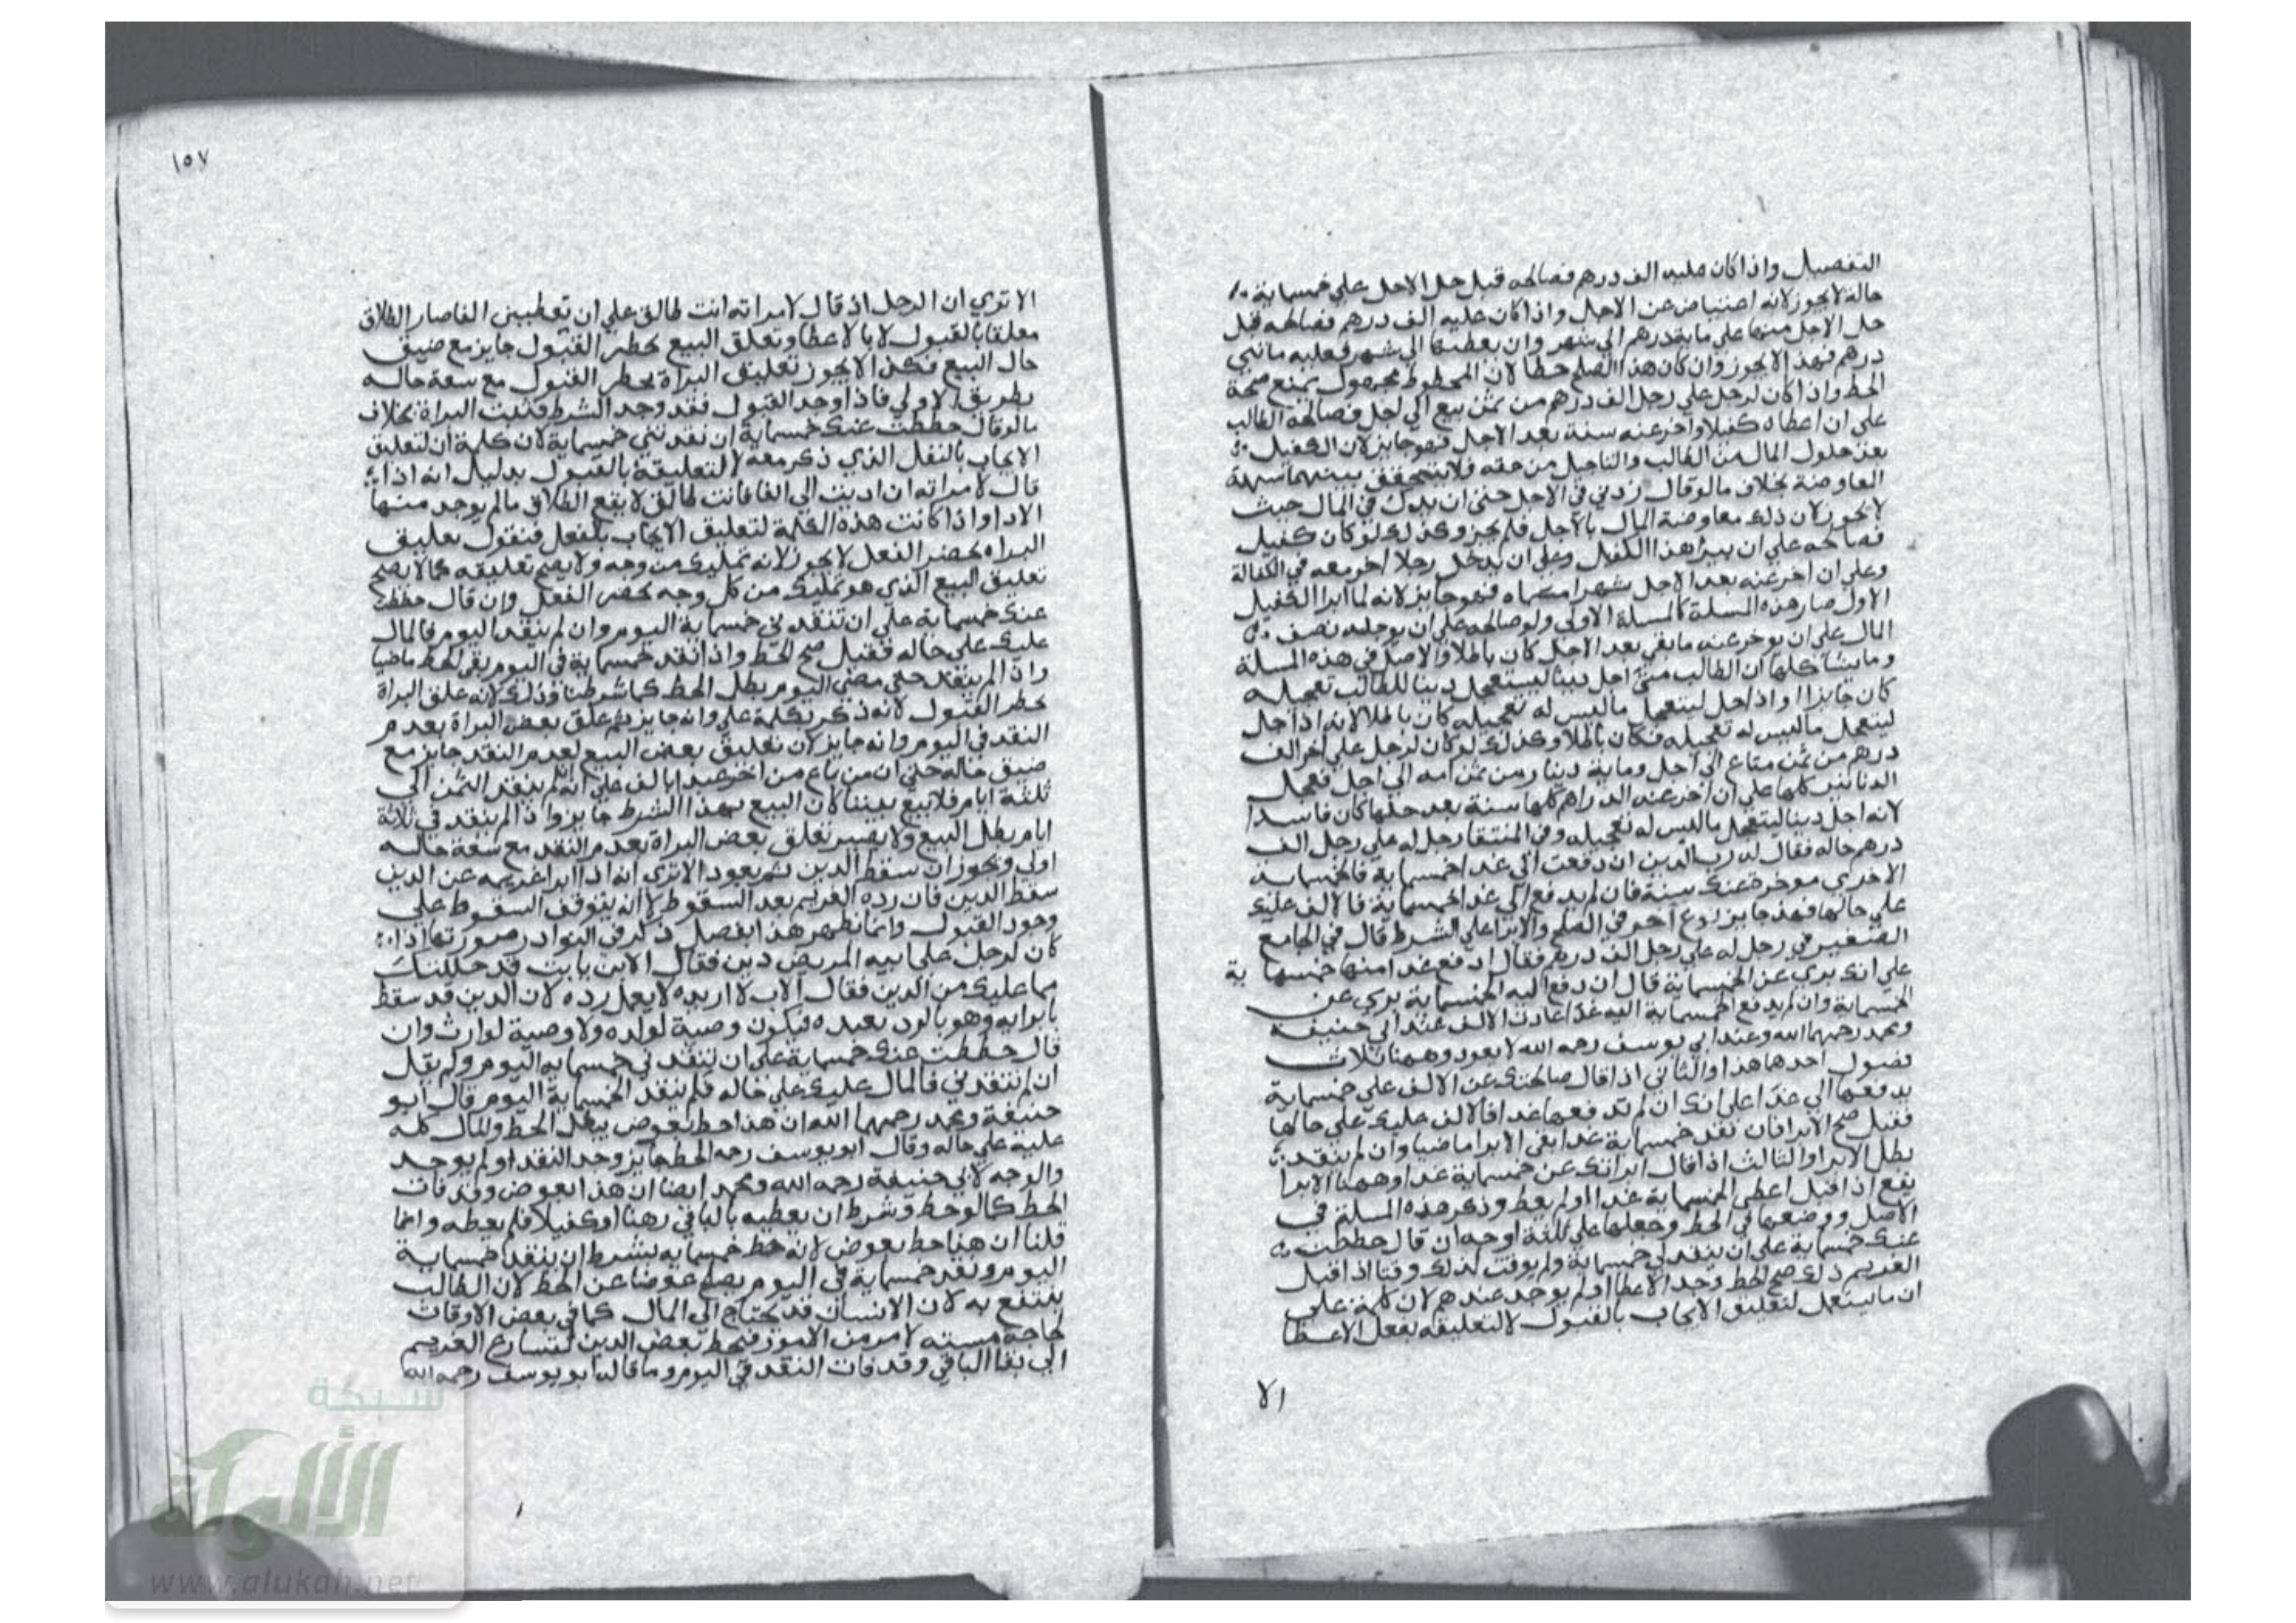 التفصيل واذا كان عليه الف درهم فصالحه قبل حل الاجل علي خمسماية
حالة لايجوز لانه اعتياض عن الاجل واذا كان عليه الف درهم فصالحه قبل
حل الاجل منها علي ماية درهم الي شهر وان يعطها الي شهر فعليه مايتي
درهم فهذا لايجوز وان كان هذا الصلح حطا لان المحطوط مجهول يمنع صحة
الحط واذا كان لرجل علي رجل الف درهم من ثمن بيع الي اجل فصالحه الطالب
علي ان اعطاه كفيلا واخر عنه سنة بعد الاجل فهو جايز لان الكفيل
حلول المال من الطالب والتاجيل من حقه فلا يتحقق بينهما
المعاوضة بخلاف مالو قال زدني في الاجل حتى ان بدلك في المال حيث
لايجوز لان ذلك معاوضة المال بالاجل فلم يجز وكذلك لو كان كفيل
فصالحه علي ان يبرا هذا الكفيل وعلي ان يدخل رجلا اخر معه في الكفالة
وعلي ان اخر عنه بعد الاجل شهرا فهو جايز لانه لما ابرا الكفيل
الاول صار هذه المسلة كالمسلة الاولى ولو صالحه علي ان يوجله نصف
المال علي ان يوخر عنه مابقي بعد الاجل كان باطلا والاصل في هذه المسلة
ومايشاكلها ان الطالب متى اجل دينا ليستعجل دينا للطالب تعجيله
كان جايزا واذا اجل ليتعجل ماليس له تعجيله كان باطلا لانه اذا اجل
ليتعجل ماليس له تعجيله فكان باطلا وكذلك لو كان لرجل علي اخر الف
درهم من ثمن متاع الي اجل وماية دينار من ثمن امه الي اجل فعجل
الدنانير كلها علي ان اخر عنه الدراهم كلها سنة بعد حلها كان فاسدا
لانه اجل دينا ليتعجل ماليس له تعجيله وفي المنتقا رجل له علي رجل الف
درهم حاله فقال له رب الدين ان دفعت الي غدا خمسماية فالخمسماية
الاخرى موخرة عنك سنة فان لم يدفع الي غدا الخمسماية فالالف عليك
علي حالها فهذ جايز نوع اخر في الصلح والابرا علي الشرط قال في الجامع
الصغير في رجل له علي رجل الف درهم فقال ادفع غدا منها خمسماية
علي انك بري عن الخمسماية قال ان دفع اليه الخمسماية بري عن
الخمسماية وان لم يدفع الخمسماية اليه غدا عادت الالف عند ابي حنيفة
ومحمد رحمهما الله وعند ابي يوسف رحمه الله لايعود وههنا ثلاث
فصول احدها هذا والثاني اذا قال صالحتك عن الالف علي خمسماية
يدفعها الي غدا علي انك ان لم تدفعها غدا فالالف عليك علي حالها
فقبل صح الابرا فان نقد خمسماية غدا بقى الابرا ماضيا وان لم ينقد
بطل الابرا والثالث اذا قال ابراتك عن خمسماية غدا وههنا الابرا
يقع اذا قبل اعطى الخمسماية غدا اولم يعط وذكر هذه المسلة في
الاصل ووضعها في الحط وجعلها علي ثلثة اوجه ان قال حططت
عنك خمسماية علي ان ينقد لي خمسماية ولم يوقت لذلك وقتا اذا قبل
الغريم ذلك صح الحط وجد الاعطا اولم يوجد عندهم لان كلمة علي
ان مايستعمل لتعليق الايجاب بالقبول لا لتعليقه بفعل الاعطا
الا
١٥٧
الاترى ان الرجل اذ قال لامراته انت طالق علي ان تعطيني الفا صار الطلاق
معلقا بالقبول لا بالاعطا وتعلق البيع بخطر القبول جايز مع ضيق
حال البيع فكذا لايجوز تعليق البراة بخطر القبول مع سعة حاله
بطريق الاولي فاذا وجد القبول فقد وجد الشرط فتثبت البراة بخلاف
مالو قال حططت عنك خمسماية ان نقدتني خمسماية لان كلمة ان لتعليق
الايجاب بالنفل الذي ذكر معه لا لتعليقه بالقبول بدليل انه اذا
قال لامراته ان اديت الي الفا فانت طالق لايقع الطلاق مالم يوجد منها
الادا واذا كانت هذه الكلمة لتعليق الايجاب بالفعل فنقول تعليق
البراه بخطر الفعل لايجوز لانه تمليك من وجه ولايصح تعليقه كما لايصح
تعليق البيع الذي هو تمليك من كل وجه بخطر الفعل وان قال حططت
عنك خمسماية علي ان تنقد ني خمسماية اليوم وان لم ينقد اليوم فالمال
عليك علي حاله فقبل صح الحط واذا نقد خمسماية في اليوم بقي الحط ماضيا
واذا لم ينقد حتى مضى اليوم بطل الحط كما شرطنا وذلك لانه علق البراة
بخطر القبول لانه ذكر بكلمة علي وانه جايز ثم علق بعض البراة بعدم
النقد في اليوم وانه جايز لان تعليق بعض البيع لعدم النقد جايز مع
ضيق حاله حتى ان من باع من اخر عبدا بالف علي انه لم ينقد الثمن الي
ثلثة ايام فلابيع بيننا كان البيع بهذا الشرط جايز واذا لم ينقد في ثلاثة
ايام بطل البيع ولايصير تعلق بعض البراة بعدم النقد مع سعة حاله
اولى ويجوز ان سقط الدين ثم يعود الاترى انه اذا ابرا غريمه عن الدين
سقط الدين فان رده الغريم بعد السقوط لا انه يتوقف السقوط علي
وجود القبول وانما يظهر هذا بفصل ذكر في النوادر صورتها اذا
كان لرجل علي ابيه المريض دين فقال الابن يا بت قد حللتك
مما عليك من الدين فقال الاب لا اريده لايعمل رده لان الدين قد سقط
بابرايه وهو بالرد يعيده فيكون وصية لولده ولاوصية لوارث وان
قال حططت عنك خمسماية علي ان تنقد ني خمسمايه اليوم ولم يقل
ان لم تنقدني فالمال عليك علي حاله فلم ينقد الخمسماية اليوم قال ابو
حنيفة ومحمد رحمهما الله ان هذا حط بعوض يبطل الحط والمال كله
عليه علي حاله وقال ابو يوسف رحه الحط جايز وجد النقد اولم يوجد
والوجه لابي حنيفة رحمه الله ومحمد ايضا ان هذا بعوض وقد فات
الحط كمالو حط وشرط ان يعطيه بالباقي رهنا او كفيلا فلم يعطه وانما
قلنا ان هذا حط بعوض لانه حط خمسمايه بشرط ان ينقد خمسماية
اليوم ونقد خمسماية في اليوم يصلح عوضا عن الحط لان الطالب
ينتفع به لان الانسان قد يحتاج الى المال كما في بعض الاوقات
لحاجة مسته لامر من الامور فيحط بعض الدين لتسارع الغريم
الي بقا الباقي وقد فات النقد في اليوم وماقاله ابو يوسف رحمه الله
شبكة
الألوكة
www.alukah.net